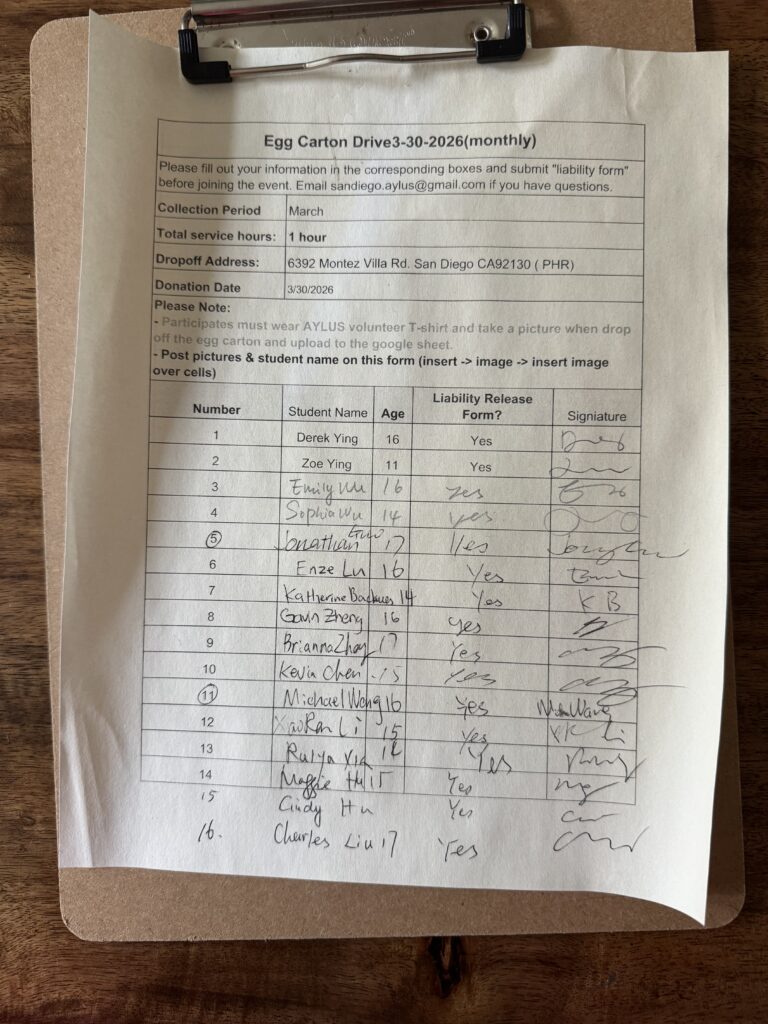 Egg Carton Drive3-30-2026(monthly)
Please fill out your information in the corresponding boxes and submit "liability form"
before joining the event. Email sandiego.aylus@gmail.com if you have questions.
Collection Period March
Total service hours: 1 hour
Dropoff Address: 6392 Montez Villa Rd. San Diego CA92130 ( PHR)
Donation Date 3/30/2026
Please Note:
- Participates must wear AYLUS volunteer T-shirt and take a picture when drop
off the egg carton and upload to the google sheet.
- Post pictures & student name on this form (insert -> image -> insert image
over cells)
Number Student Name Age Liability Release Form? Signiature
1 Derek Ying 16 Yes
2 Zoe Ying 11 Yes
3 Emily Wu 16 yes
4 Sophia Wu 14 yes
5 Jonathan Guo 17 Yes
6 Enze Lu 16 Yes
7 Katherine 14 Yes KB
8 Gavin Zheng 16 yes
9 Brianna 17 Yes
10 Kevin Chen 15 Yes
11 Michael Wang 16 Yes
12 Li 15 Yes
13 Ruiya Yes
14 Maggie Hu 15 Yes
15 Cindy Hu Yes
16. Charles Liu 17 Yes